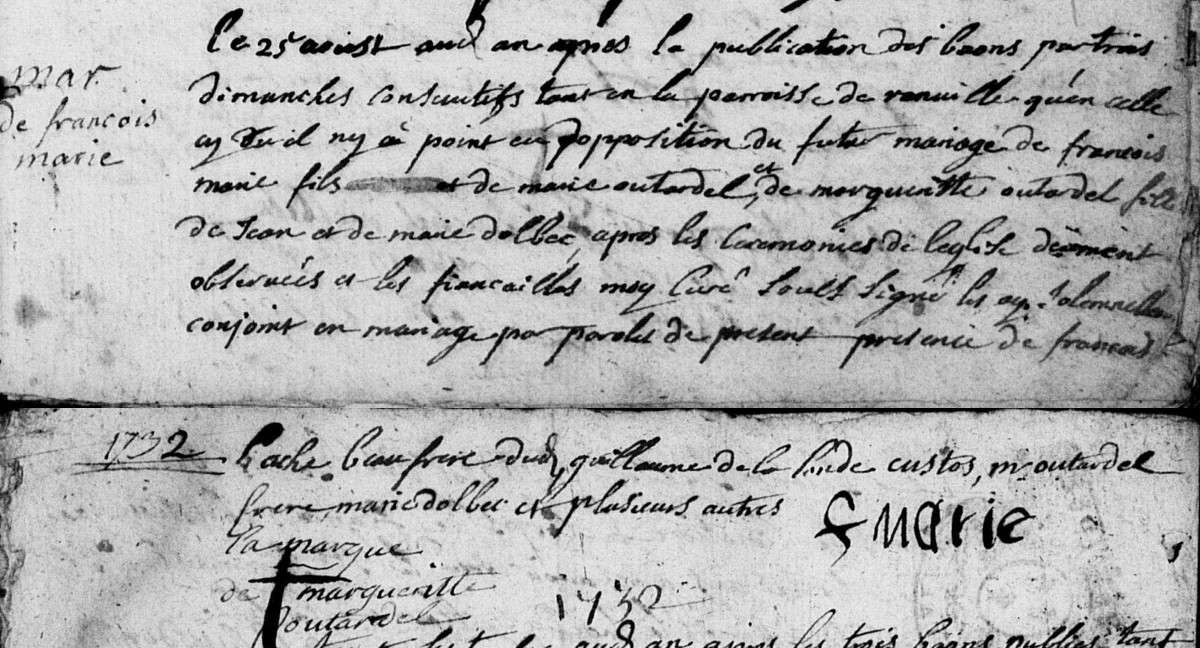 le 25 aoust aud an apres la publication des bans par trois
mar
dimanches consecutifs tant en la parroisse de ranville qu'en celle
de francois
cy qu'il ny a point eu d'opposition du futur mariage de francois
marie
marie fils et de marie outardel, et de margueritte outardel fille
de Jean et de marie dolbec, apres les ceremonies de leglise deument
observées et les fiancailles moy curé souls signé les ay solemnellem
conjoint en mariage par paroles de present presence de francois
1732
hache beau frere dud guillaume de la londe custos, m outardel
frere marie dolbec et plusieurs autres
f marie
la marque
de margueritte
outardel
1732
aud an apres les trois bans publiés tant